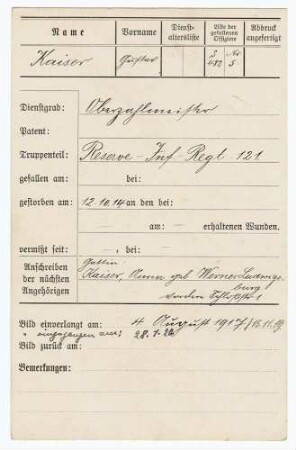 Name Vorname Dienst-altersliste Liste der gefallenen Offiziere Abdruck angefertigt
Kaiser Gustav S 482 Nr 5
Dienstgrad: Oberzahlmeister
Patent:
Truppenteil: Reserve-Inf-Regt. 121
gefallen am: bei:
gestorben am: 12.10.14 an den bei:
— am: — erhaltenen Wunden.
vermißt seit: —, bei: —
Gattin
Anschreiben Kaiser, Anna geb Werner Ludwigs-
der nächsten burg
Angehörigen
Bild einverlangt am: 4 August 1917/13.11.19
" eingegangen am: 28.7.20
Bild zurück am:
Bemerkungen: